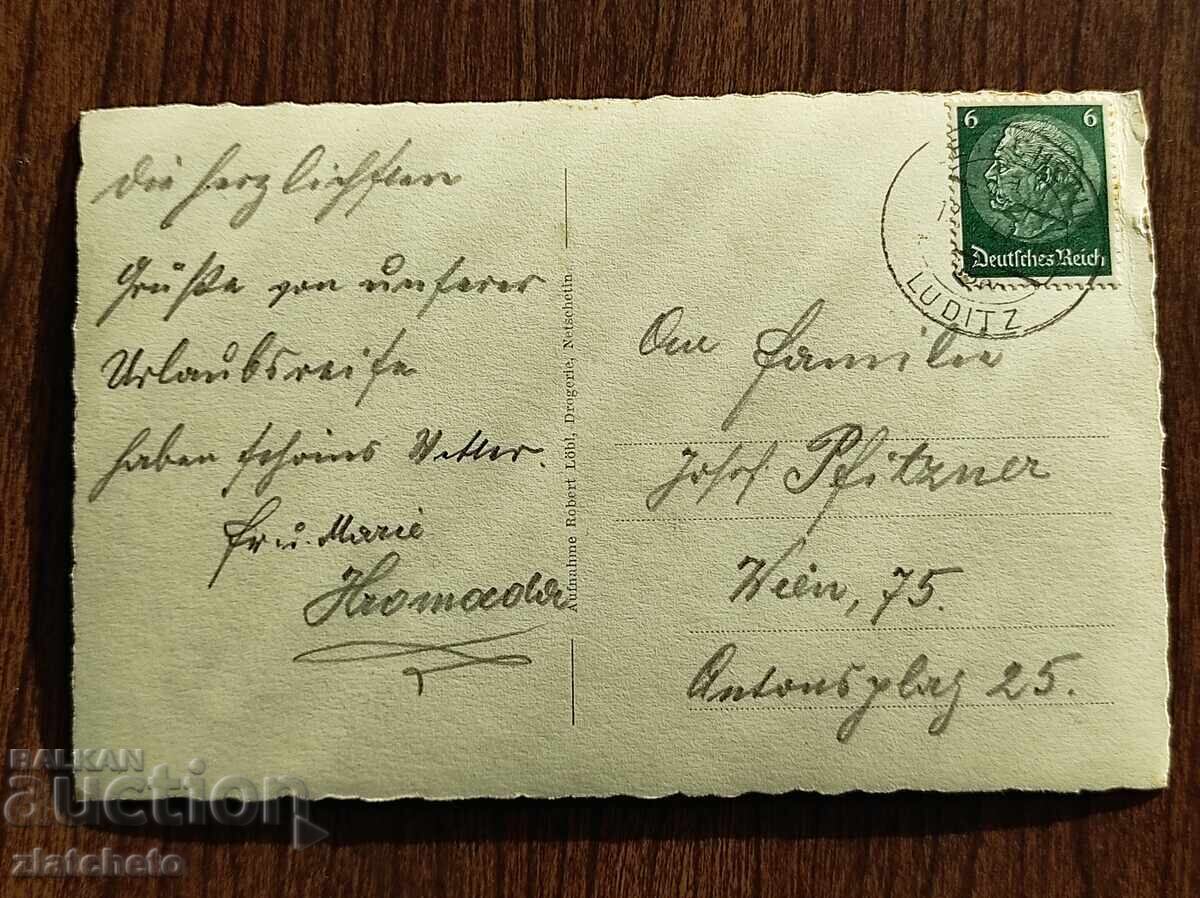 die herzlichsten
Grüße von unserer
Urlaubsreise
haben schönes Wetter.
Fr. u. Marie
Hromada
Aufnahme Robert Löbl, Drogerie, Netschetin
6 6
Deutsches Reich
LUDITZ
An Familie
Josef Pfitzner
Wien, 75.
Antonsplatz 25.
BALKAN
auction
zlatcheto